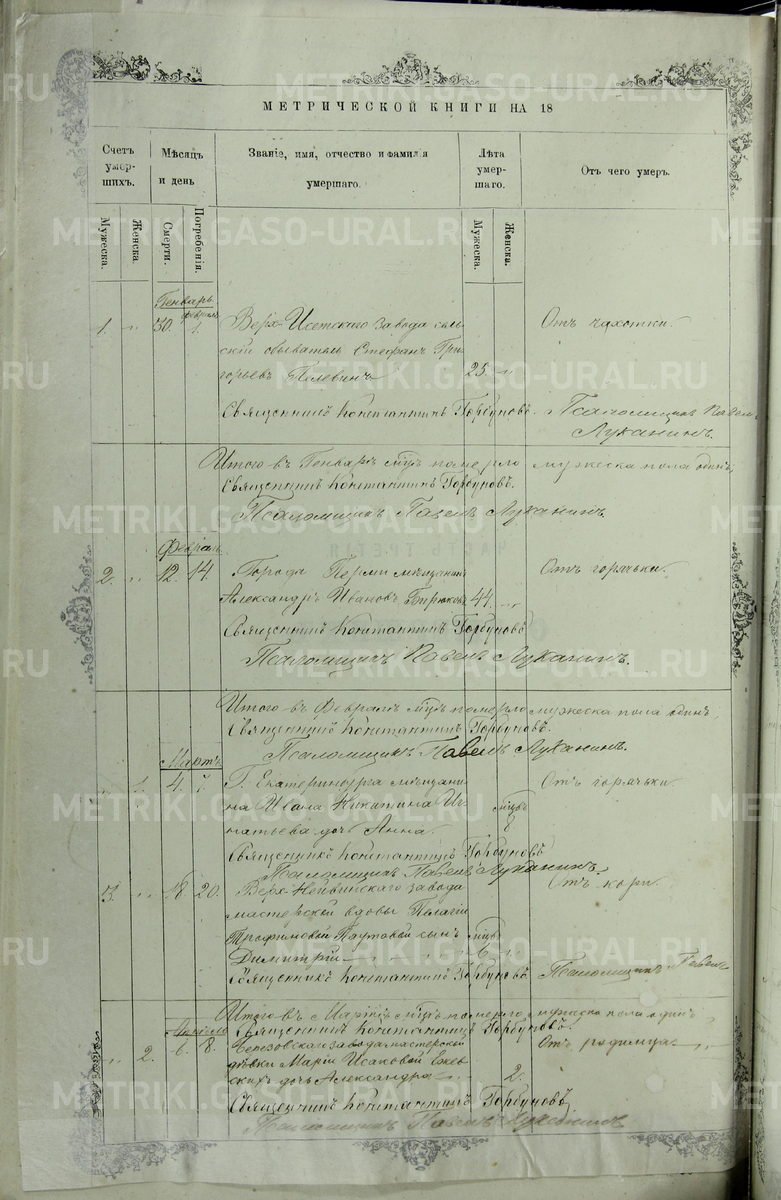 МЕТРИЧЕСКОЙ КНИГИ НА 18
Счетъ умер-шихъ.
Мѣсяцъ и день
Званіе, имя, отчество и фамилія умершаго.
Лѣта умер-шаго.
Отъ чего умеръ.
Мужеска.
Женска.
Смерти.
Погребенія.
Мужеска.
Женска.
Генварь
февраль
1. „ 30. 1. Верхъ Исетскаго завода сель-
Отъ чахотки.
скій обыватель Стефанъ Гри-
горьевъ 25 „
Священникъ Константинъ Горбуновъ. Псаломщикъ Павелъ
Луканинъ.
Итого въ Генварѣ мцѣ померло мужеска пола одинъ,
Священникъ Константинъ Горбуновъ.
Псаломщикъ Павелъ Луканинъ.
Февраль
2. „ 12. 14. Города Перми мѣщанинъ
Отъ горячки.
Александръ Ивановъ 44. „
Священникъ Константинъ Горбуновъ
Псаломщикъ Павелъ Луканинъ.
Итого въ Февралѣ мцѣ померло мужеска пола одинъ,
Священникъ Константинъ Горбуновъ.
Псаломщикъ Павелъ Луканинъ.
Мартъ
„ 1. 4. 7. Г. Екатеринбурга мѣщани-
Отъ горячки.
на Ивана Никитина Иг-
мцъ
натьева дочь Анна. 8
Священникъ Константинъ Горбуновъ
Псаломщикъ Павелъ Луканинъ.
3. „ 18 20. Верхъ-Нейвинскаго завода
Отъ кори.
мастерской вдовы Пелагіи
Трофимовой сынъ мцъ
Димитрій 6 „
Священникъ Константинъ Горбуновъ Псаломщикъ Павелъ
Итого въ Мартѣ мцѣ померло мужеска пола одинъ
Священникъ Константинъ Горбуновъ.
Апрѣль
„ 2. 6. 8. завода мастерской
Отъ родимца
дѣвки Маріи Исаковой
дочь Александра 2.
Священникъ Константинъ Горбуновъ
Псаломщикъ Павелъ Луканинъ
METRIKI.GASO-URAL.RU